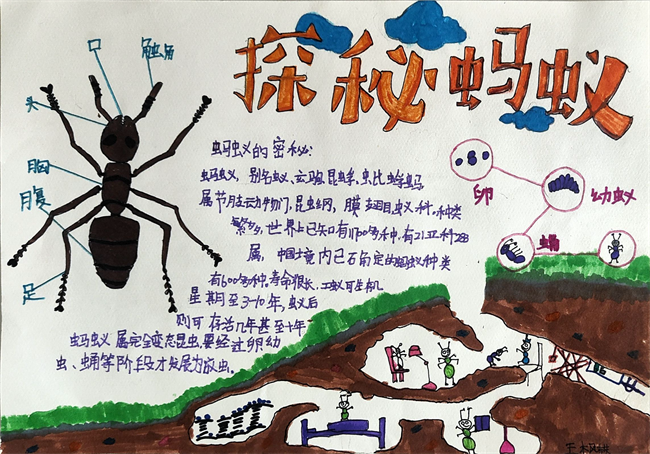 探秘蚂蚁
口
触角
头
胸
腹
足
蚂蚁的密秘:
蚂蚁,别名蚁、玄驹、昆蜉、蚍蜉蚂
属节肢动物门,昆虫纲,膜翅目,蚁科,种类
繁多,世界上已知有11700多种,有21亚科283
属,中国境内已确定的蚂蚁种类
有600多种,寿命很长,工蚁可生机
星期至3-10年,蚁后
则可存活几年甚至十年
蚂蚁属完全变态昆虫,要经过卵幼
虫、蛹等阶段才发展为成虫。
卵
幼蚁
蛹